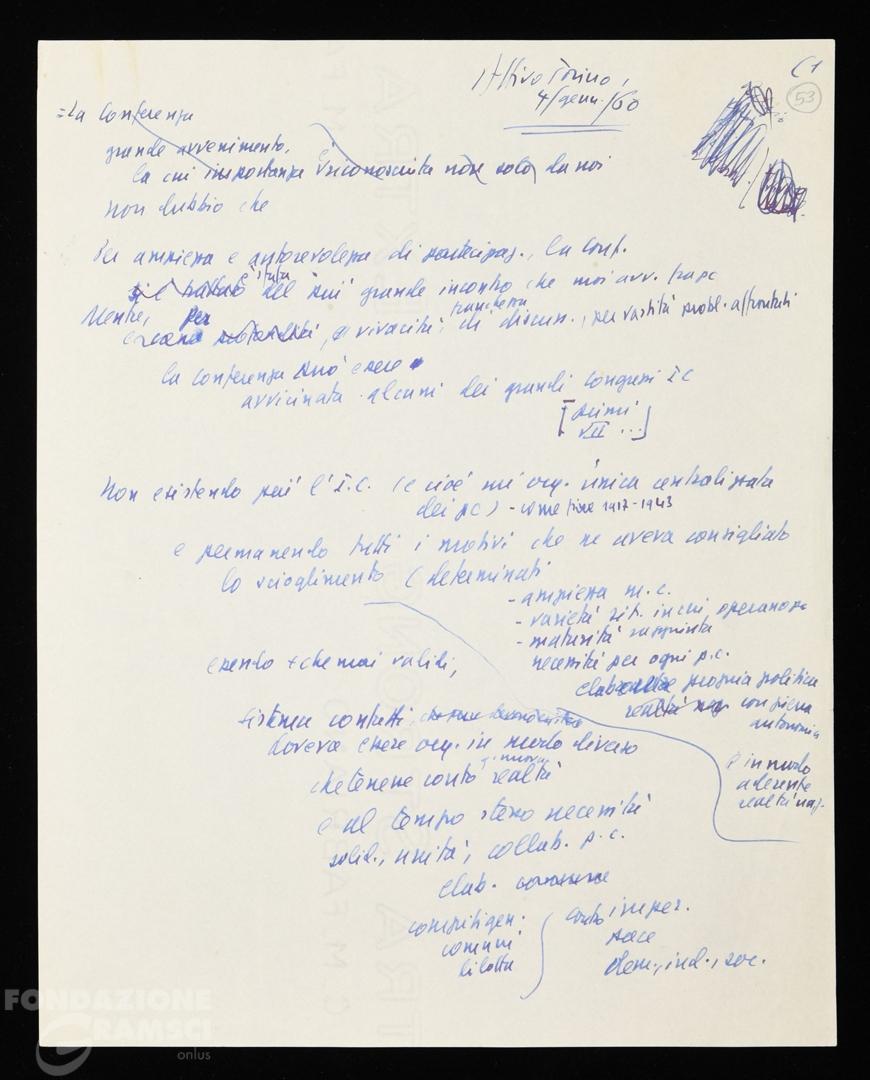 Attivo Torino,
4/genn./60
C1
53
= La Conferenza
grande avvenimento,
la cui importanza è riconosciuta non solo da noi
non dubbio che
Per ampiezza e autorevolezza di partecipaz., la Conf.
è stata del più grande incontro che mai avv. 
Mentre, per vivacità, franchezza di discuss., per vastità probl. affrontati
la conferenza può essere
avvicinata alcuni dei grandi congressi I C
[primi
VII ...]
Non esistendo più l'I.C. (e cioè un' org. unica centralizzata
dei pc) - come fine 1917-1943
e permanendo tutti i motivi che ne aveva consigliato
lo scioglimento (determinati
- ampiezza m.c.
- varietà sit. in cui operano pc
- maturità raggiunta
necessità per ogni p.c.
elaborare propria politica
realtà naz con piena
autonomia
e in modo
aderente
realtà naz.
essendo + che mai validi,
sistema contatti
doveva essere org. in modo diverso
che tenesse conto nuova realtà
e al tempo stesso necessità
solid., unità, collab. p.c.
elab. comune
compiti gen.
comuni
di lotta
contro imper.
pace
dem., ind., soc.
FONDAZIONE
GRAMSCI
onlus